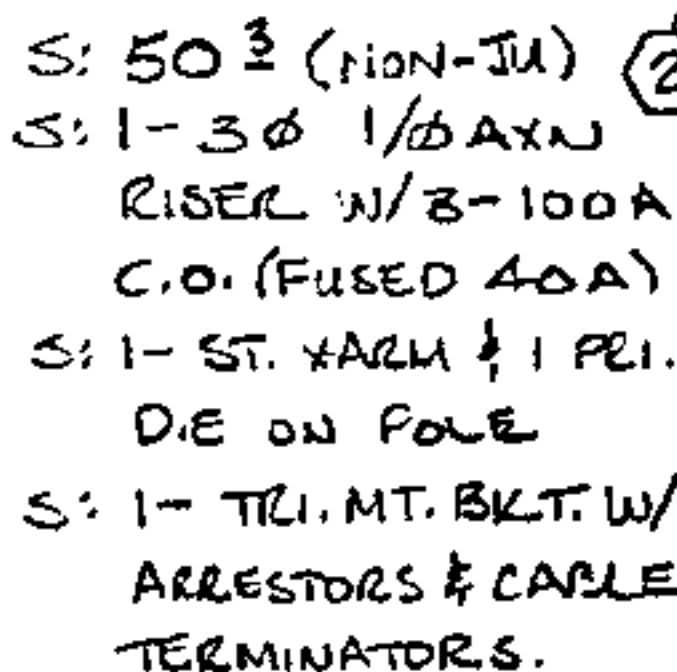 S: 50 3 (NON-JU) 2
S: 1- 3Ø 1/Ø AXN
RISER W/ 3-100A
C.O. (FUSED 40A)
S: 1- ST. XARM & 1 PRI.
D.E ON POLE
S: 1- TRI. MT. BKT. W/
ARRESTORS & CABLE
TERMINATORS.